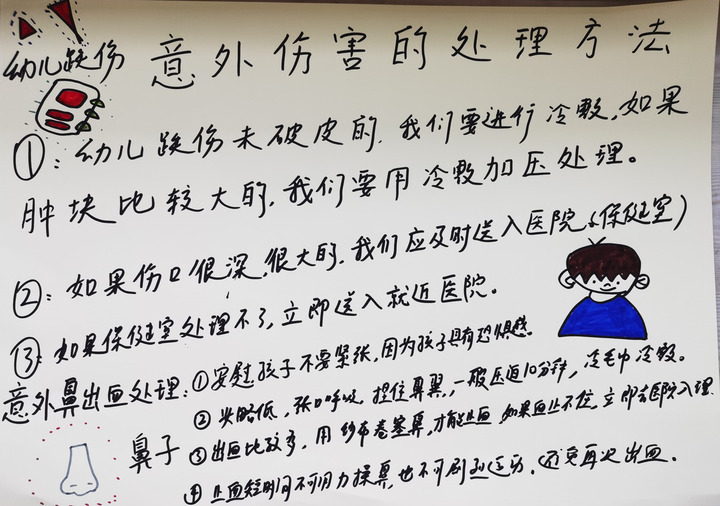 幼儿跌伤 意外伤害的处理方法
①:幼儿跌伤未破皮的,我们要进行冷敷,如果
肿块比较大的,我们要用冷敷加压处理。
②:如果伤口很深,很大的,我们应及时送入医院(保健室)
③:如果保健室处理不了,立即送入就近医院。
意外鼻出血处理:①安慰孩子不要紧张,因为孩子具有恐惧感。
②头略低,张口呼吸,捏住鼻翼,一般压迫10分钟,冷毛巾冷敷。
鼻子 ③出血比较多,用纱布卷塞鼻,才能止血,如果血止不住,立即去医院处理
④止血短时间不可用力揉鼻,也不可剧烈运动,避免再次出血。